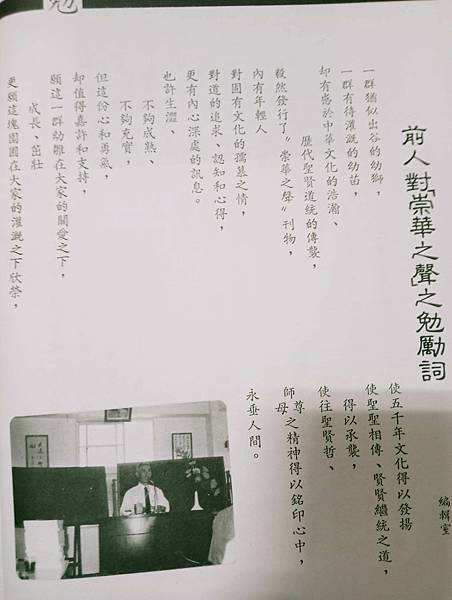 勉
前人對「崇華之聲」之勉勵詞
編輯室
一群猶似出谷的幼獅，
一群有待灌溉的幼苗，
却有感於中華文化的浩瀚、
歷代聖賢道統的傳襲，
毅然發行了〝崇華之聲〞刊物，
內有年輕人
對固有文化的孺慕之情，
對道的追求、認知和心得，
更有內心深處的訊息。
也許生澀、
不夠成熟、
不夠充實，
但這份心和勇氣，
却值得嘉許和支持，
願這一群幼雛在大家的關愛之下，
成長、茁壯
更願這塊園圃在大家的灌溉之下欣榮，
使五千年文化得以發揚
使聖聖相傳、賢賢繼統之道，
得以承襲，
使往聖賢哲、
師尊
師母之精神得以銘印心中，
永垂人間。